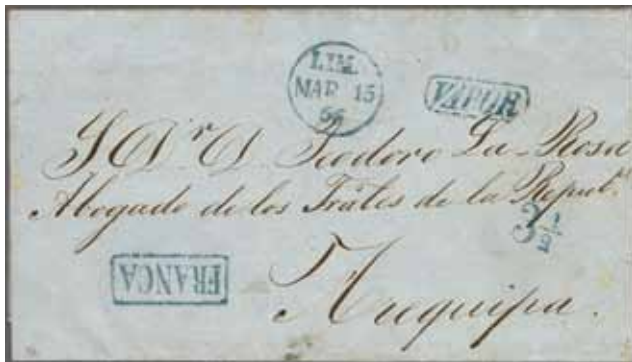 LIM.
MAR 15
56
VAPOR
S D.r D. Teodoro La-Rosa
Abogado de los Trâles de la Repub.a
3½
FRANCA
Arequipa.